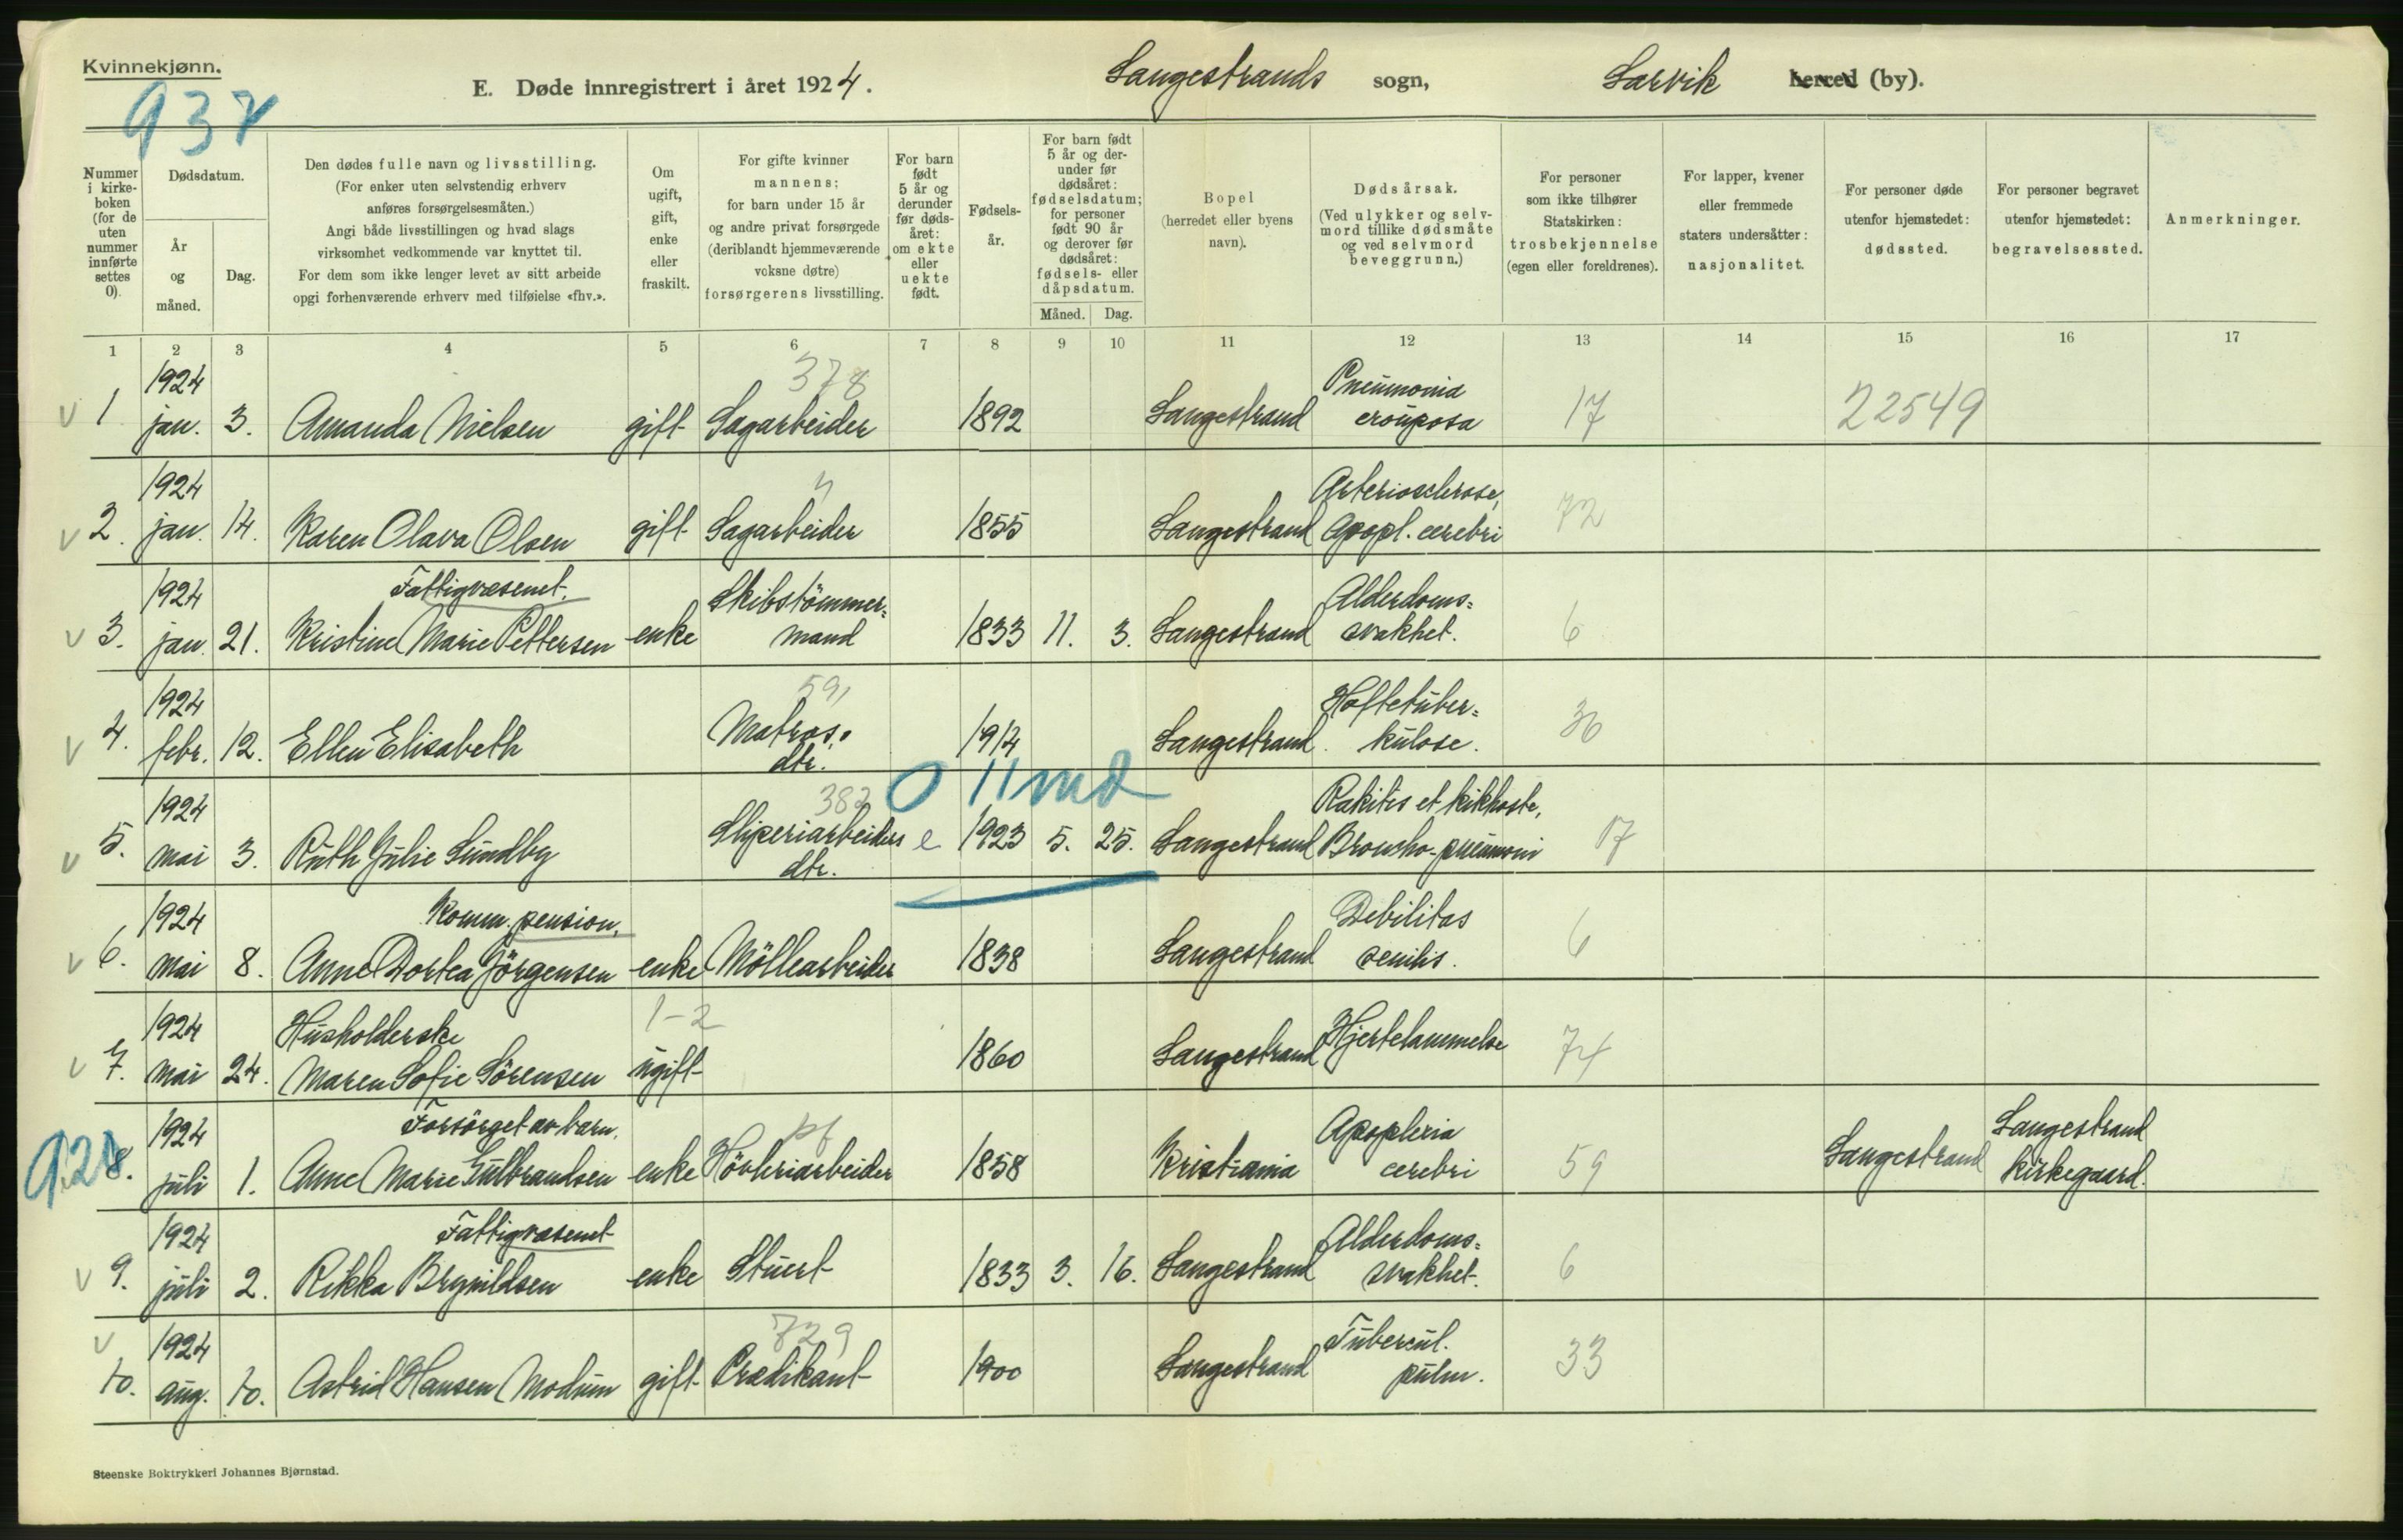 Kvinnekjønn.
937
E. Døde innregistrert i året 1924.
Langestrands sogn,
Larvik herred (by).
Nummer i kirkeboken (for de uten nummer innførte settes 0).
Dødsdatum.
År og måned.
Dag.
Den dødes fulle navn og livsstilling.
(For enker uten selvstendig erhverv
anføres forsørgelsesmåten.)
Angi både livsstillingen og hvad slags
virksomhet vedkommende var knyttet til.
For dem som ikke lenger levet av sitt arbeide
opgi forhenværende erhverv med tilføielse «fhv.».
Om
ugift,
gift,
enke
eller
fraskilt.
For gifte kvinner
mannens;
for barn under 15 år
og andre privat forsørgede
(deriblandt hjemmeværende
voksne døtre)
forsørgerens livsstilling.
For barn
født
5 år og
derunder
før døds-
året:
om ekte
eller
uekte
født.
Fødsels-
år.
For barn født
5 år og der-
under før
dødsåret:
fødselsdatum;
for personer
født 90 år
og derover før
dødsåret:
fødsels- eller
dåpsdatum.
Måned. Dag.
Bopel
(herredet eller byens
navn).
Dødsårsak.
(Ved ulykker og selv-
mord tillike dødsmåte
og ved selvmord
beveggrunn.)
For personer
som ikke tilhører
Statskirken:
trosbekjennelse
(egen eller foreldrenes).
For lapper, kvener
eller fremmede
staters undersåtter:
nasjonalitet.
For personer døde
utenfor hjemstedet:
dødssted.
For personer begravet
utenfor hjemstedet:
begravelsessted.
Anmerkninger.
1 2 3 4 5 6 7 8 9 10 11 12 13 14 15 16 17
1924 378 Pneumonia
v 1 jan. 3. Amanda Nielsen gift Sagarbeider 1892 Langestrand crouposa 17 22549
1924 " Arteriosclerose,
v 2. jan. 14. Karen Olava Olsen gift Sagarbeider 1855 Langestrand Apopl. cerebri 72
1924 Fattigvæsenet. Skibstömmer= Alderdoms=
v 3. jan. 21. Kristine Marie Pettersen enke mand 1833 11. 3. Langestrand svakhet. 6
1924 591 Hoftetuber=
v 4. febr. 12. Ellen Elisabeth Matros. 1914 Langestrand. kulose. 30
dtr.
0 11 md
1924 382 Rakitis et kikhoste,
v 5. mai 3. Ruth Julie Sundby Sliperiarbeiders e 1923 5. 25. Langestrand Broncho-pneumoni 17
dtr.
1924 Komm. pension. Debilitas
v 6. mai 8. Anne Dortea Jörgensen enke Möllearbeider 1838 Langestrand senilis. 6
1924 Husholderske 1-2
v 7. mai 24. Maren Sofie Sörensen ugift 1860 Langestrand Hjertelammelse 74
1924 Forsörget av barn. pf Apoplexia Langestrand
928 8. juli 1. Anne Marie Gulbrandsen enke Hövleriarbeider 1858 Kristiania cerebri 59 Langestrand kirkegaard.
1924 Fattigvæsenet Alderdoms=
v 9. juli 2. Rikka Brynildsen enke Stuert 1833 3. 16. Langestrand svakhet. 6
v 1924 729 Tubercul.
10. aug. 10. Astrid Hansen Modum gift Prædikant 1900 Langestrand pulm. 33
Steenske Boktrykkeri Johannes Bjørnstad.